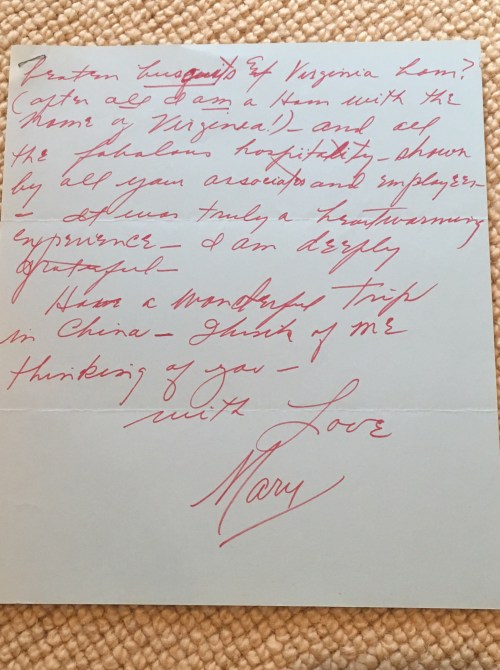 beaten busquits Virginia ham?
(after all I am a Ham with the
Name of Virginia!) – and all
the fabulous hospitality – shown
by all your associates and employees
– It was truly a heartwarming
experience – I am deeply
grateful –
Have a wonderful Trip
in China – Think of me
thinking of you –
with Love
Mary